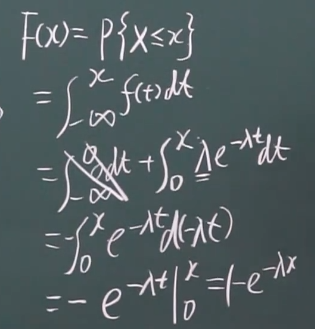 F(x)=P{X≤x}
=∫_{-∞}^{x} f(t)dt
=∫_{-∞}^{0} 0dt+∫_{0}^{x} λe^{-λt}dt
=-∫_{0}^{x} e^{-λt}d(-λt)
=-e^{-λt}|_{0}^{x}=1-e^{-λx}